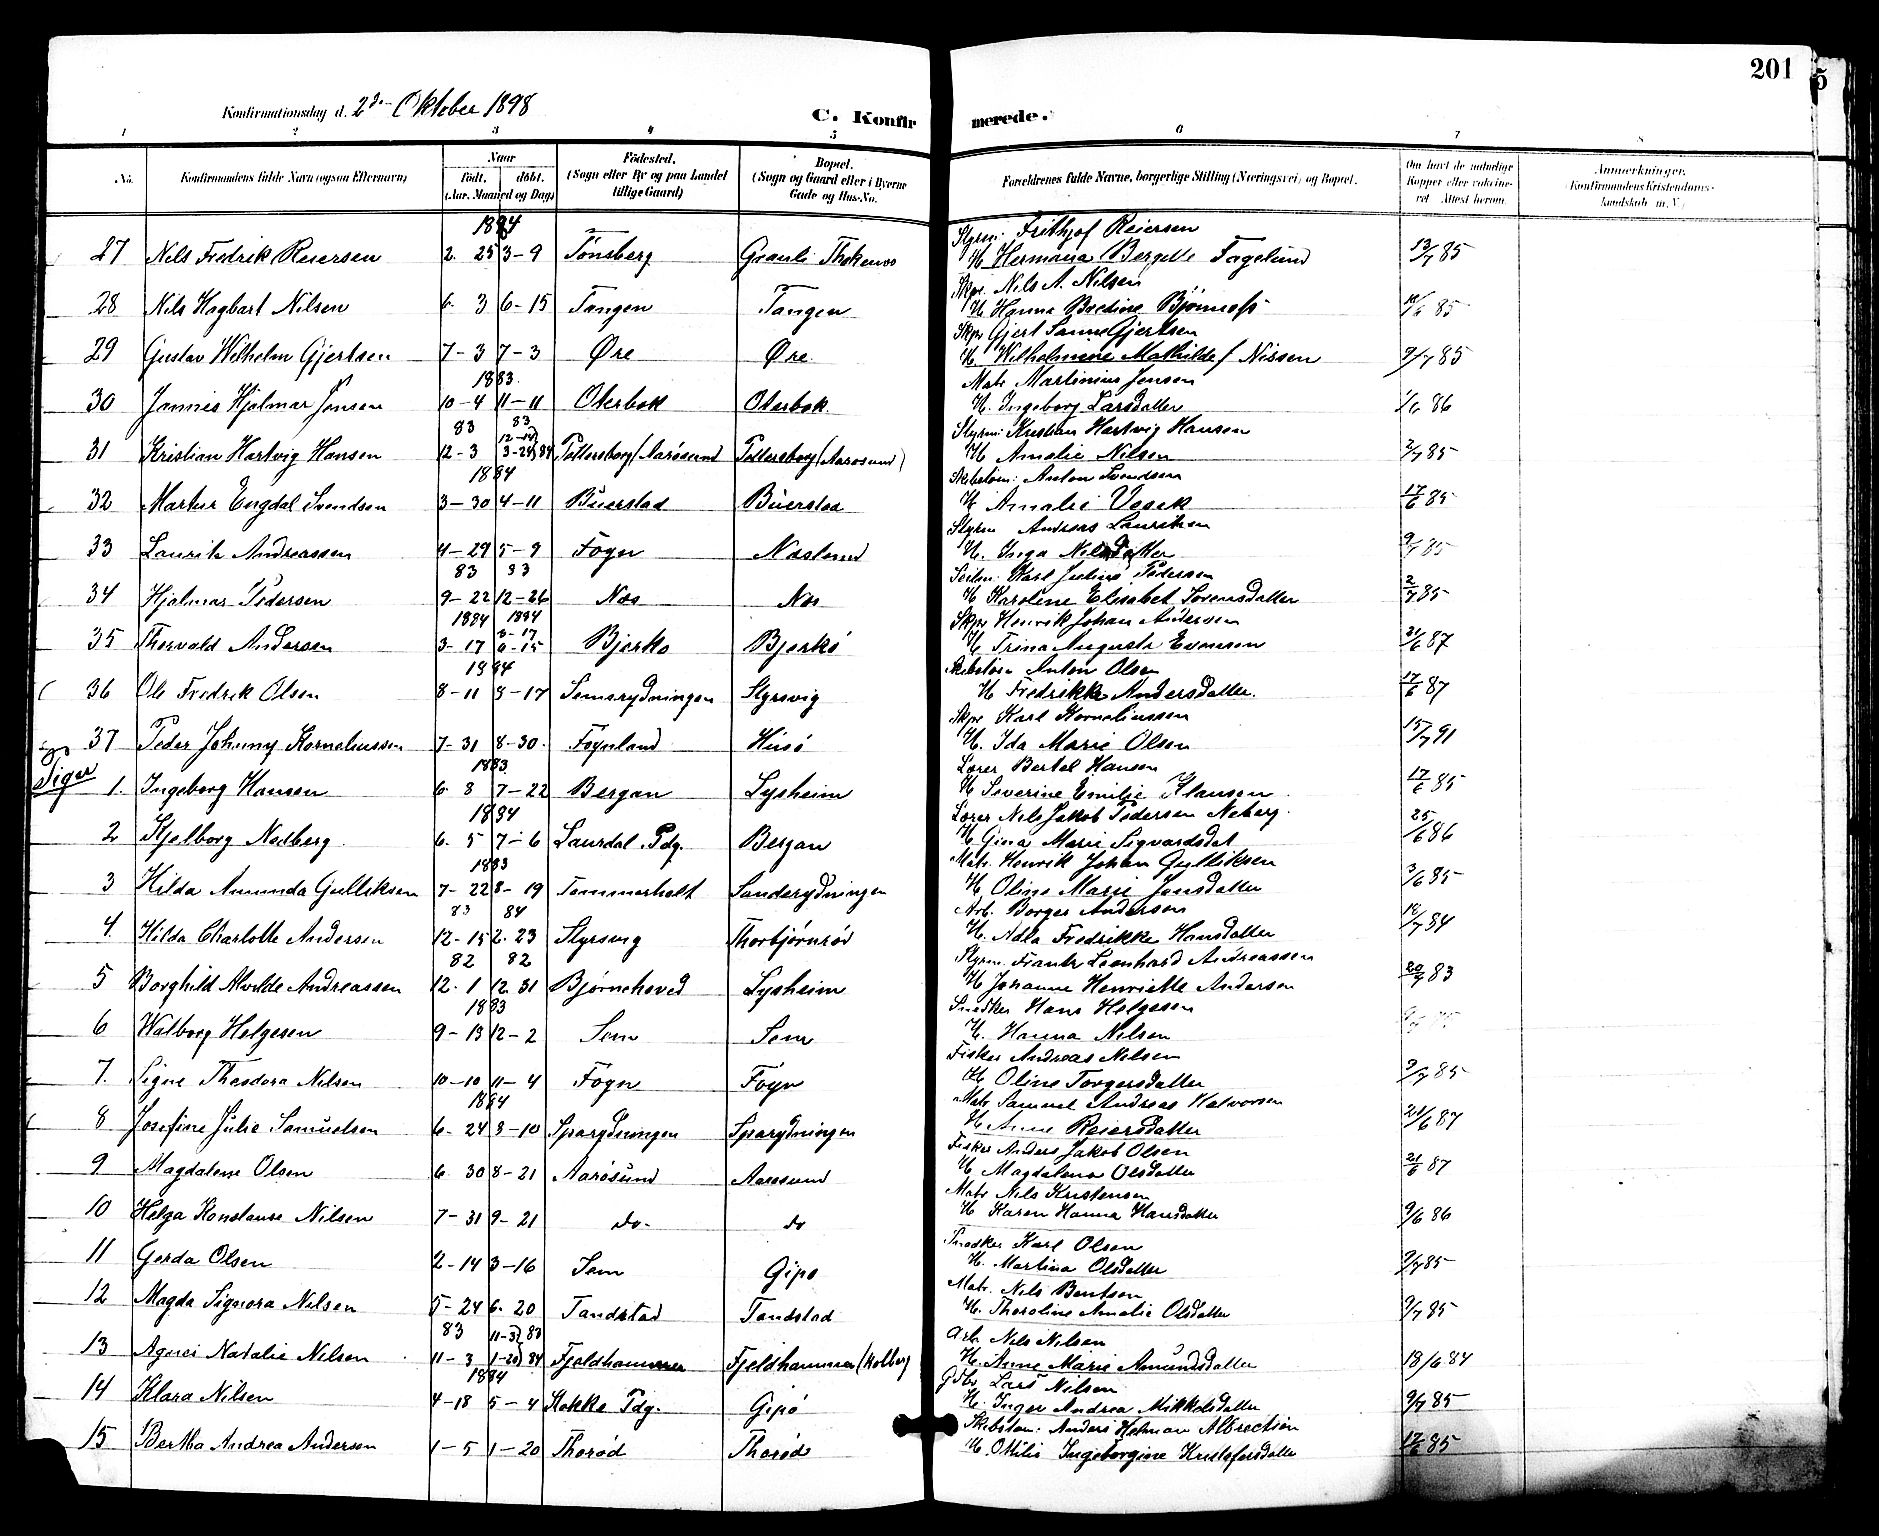 201
5
Konfirmationsdag d. 2den Oktober 1898
C. Konfir merede.
1 2 3 4 5 6 7 8
No. Konfirmandens fulde Navn (ogsaa Efternavn) Naar Födt. döbt. (Aar, Maaned og Dag) Födested. (Sogn eller By og paa Landet tillige Gaard) Bopæl. (Sogn og Gaard eller i Byerne Gade og Hus-No. Forældrenes fulde Navne, borgerlige Stilling (Næringsvei) og Bopæl. Om havt de naturlige Kopper eller vaccineret. Attest herom. Anmerkninger. (Konfirmandens Kristendomskundskab m. V.)
1884 Styrm: Frithjof Reiersen
27 Nils Fredrik Reiersen 2. 25 3-9 Tönsberg Granli H. Hermana Bergette Fagelund 13/7 85
Skpr. Nils A. Nilsen
28 Nils Hagbart Nilsen 6. 3 6-15 Tangen Tangen H. Hanna Bredine 85
Skpr Gjert Sanne Gjertsen
29 Gustav Wilhelm Gjertsen 7-3 7-3 Øre Øre H. Wilhelmine Mathilde f Nissen 9/7 85
1883. Matr Martinius Jensen
30 Jannes Hjalmar Jensen 10-4 11-11 Oterbæk Oterbæk. H. Ingeborg Larsdatter 1/6 86
83 83 Styrm: Kristian Hartvig Hansen
31 Kristian Hartvig Hansen 12-3 3-24 84 Pottersborg (Aarøsund Pottersborg (Aarøsund) H Amalie Nilsen 2/7 85
1884 Skibstøm: Anton Svendsen
32 Martin Engdal Svendsen 3-30 4-11 Buerstad Buerstad H. Amalie 17/6 85
Styrm Andreas Lauritsen
33 Laurits Andreassen 4-29 5-9 Føyn Næslund H. Inga Nilsdatter 9/7 85
83 83 Seilm: Karl Julius Pedersen
34 Hjalmar Pedersen 9-22 12-26 Næs Næs H Karoline Elisabet Sørensdatter 2/7 85
1884 1884 Skpr Henrik Johan Andersen
35 Thorvald Andersen 3-17 6-15 Bjerkø Bjerkö H. Trina Augusta Evensen 21/6 87
1884 Skibstøm Anton Olsen
36 Ole Fredrik Olsen 8-11 8-17 Semsrydningen Styrsvig H Fredrikke Andersdatter. 17/6 87
Skpr Karl Korneliussen
37 Peder Johnny Korneliussen 7-31 8-30. Føynland Husö H. Ida Marie Olsen 15/7 91
Piger
1883 Lærer Bertel Hansen
1. Ingeborg Hansen 6. 8 7-22 Bergan Lysheim H Severine Emilie Klausen. 17/6 85
1884 Lærer Nils Jakob Pedersen
2 Kjelborg 6. 5 7-6 Laurdal Pdg. Bergan H Gina Marie Sigvardsdat 25/6 86
1883 Matr. Henrik Johan Gulliksen
3 Hilda Amunda Gulliksen 7-22 8-19 Tømmerholt Sanderydningen H. Oline Marie Jensdatter 85
83 84 Arb. Borger Andersen
4. Hilda Charlotte Andersen 12-15 2.23 Styrsvig Thorbjørnrød H. Adla Fredrikke Hansdatter 18/7 84
82 82 Styrm. Frantz Leonhard Andreassen
5 Borghild Alvilde Andreassen 12.1 12 31 Bjørnehoved Lysheim H Johanne Henriette Andersen 83
1883 Snedker Hans Helgesen
6 Walborg Helgesen 9-13 12-2 Sem Sem H. Hanna Nilsen
Fisker Andreas Nilsen
7. Signe Theodora Nilsen 10-10 11-4 Føyn Føyn H Oline Torgersdatter 85
1884 Matr Samuel Andreas Halvorsen
8 Josefine Julie Samuelsen 6-24 8-10 Sparydningen Sparydningen H Anne Reiersdatter 21/6 87
Fisker Anders Jakob Olsen
9 Magdalene Olsen 6. 30 8-21 Aarøsund Aarøsund H Magdalena Olsdatter 21/6 87
Matr Nils Kristensen
10 Helga Konstanse Nilsen 7-31 9-21 do- do H Karen Hanna Hansdatter 9/6 86
Snedker Karl Olsen
11 Gerda Olsen 2-14 3-16 Sem Gipø H. Martina Olsdatter 9/7 85
Matr. Nils Bentsen
12 Magda Signora Nilsen 5-24 6.20 Tandstad Tandstad H. Thoroline Amalie Olsdatter 9/7 85
83 11-3 83 Arb. Nils Nilsen
13 Agnes Natalie Nilsen 11-3 1-20 84 Fjeldhammer Fjeldhammer (Kolberg H. Anne Marie Amundsdatter 18/6 84
1884 Gdbr Lars Nilsen
14 Klara Nilsen 4-18 5-4 Pdg. Gipö H. Inger Andrea Mikkelsdatter 9/7 85
Skibstøm: Anders Helman Albrectsen
15 Bertha Andrea Andersen 1-5 1-20 Thorød Thorød H. Ottilie Ingeborgine Kristofersdatter 17/6 85